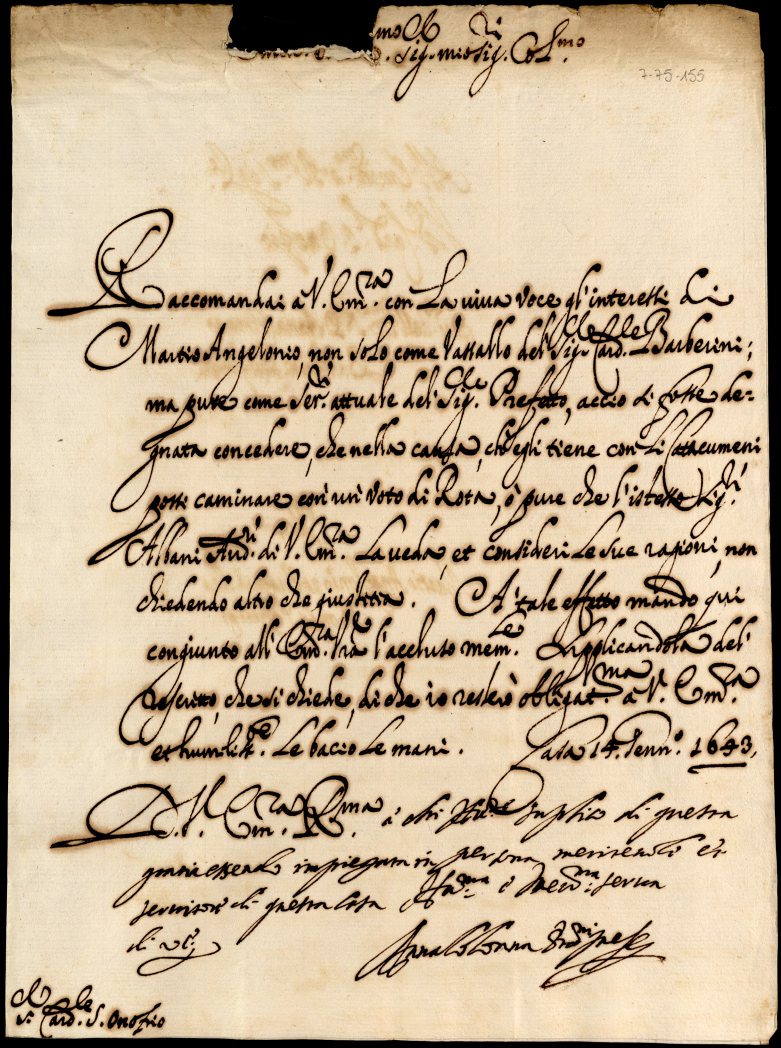 Sig. mio Sig. Col.mo
7-75-155
Raccomandai à V. Em.ra con La viva voce gl'interessi di
Martio Angelonio, non solo come Vassallo del Sig. Card.le Barberini;
ma pure come Ser.ri attuale del Sig. Prefetto, acciò si fosse de-
gnata concedere, che nella causa, ch'egli tiene con li Catacumeni
possi caminare con un Voto di Rota, ò pure che l'istesso Sig.ri
Albani Aud.ri di V. Em.ra La veda, et consideri Le sue ragioni, non
chiedendo altro che giustitia. A' tale effetto mando qui
congiunto all' Em.ra V.ra l'accluso mem.le Supplicandola del
rescritto, che si chiede, di che io resterò obligat.ma à V. Em.ra
et humiliss.e Le bacio Le mani. Casa 14. Genn.o 1643,
D. V. Em.ra R.ma à chi suplico di questa
gratia essendo impiegata in persona meritevole et
servitore di questa Casa Aff.ma è Ser.ma serva
di V.E.
Anna Colonna
S.r Card.le S. Onofrio